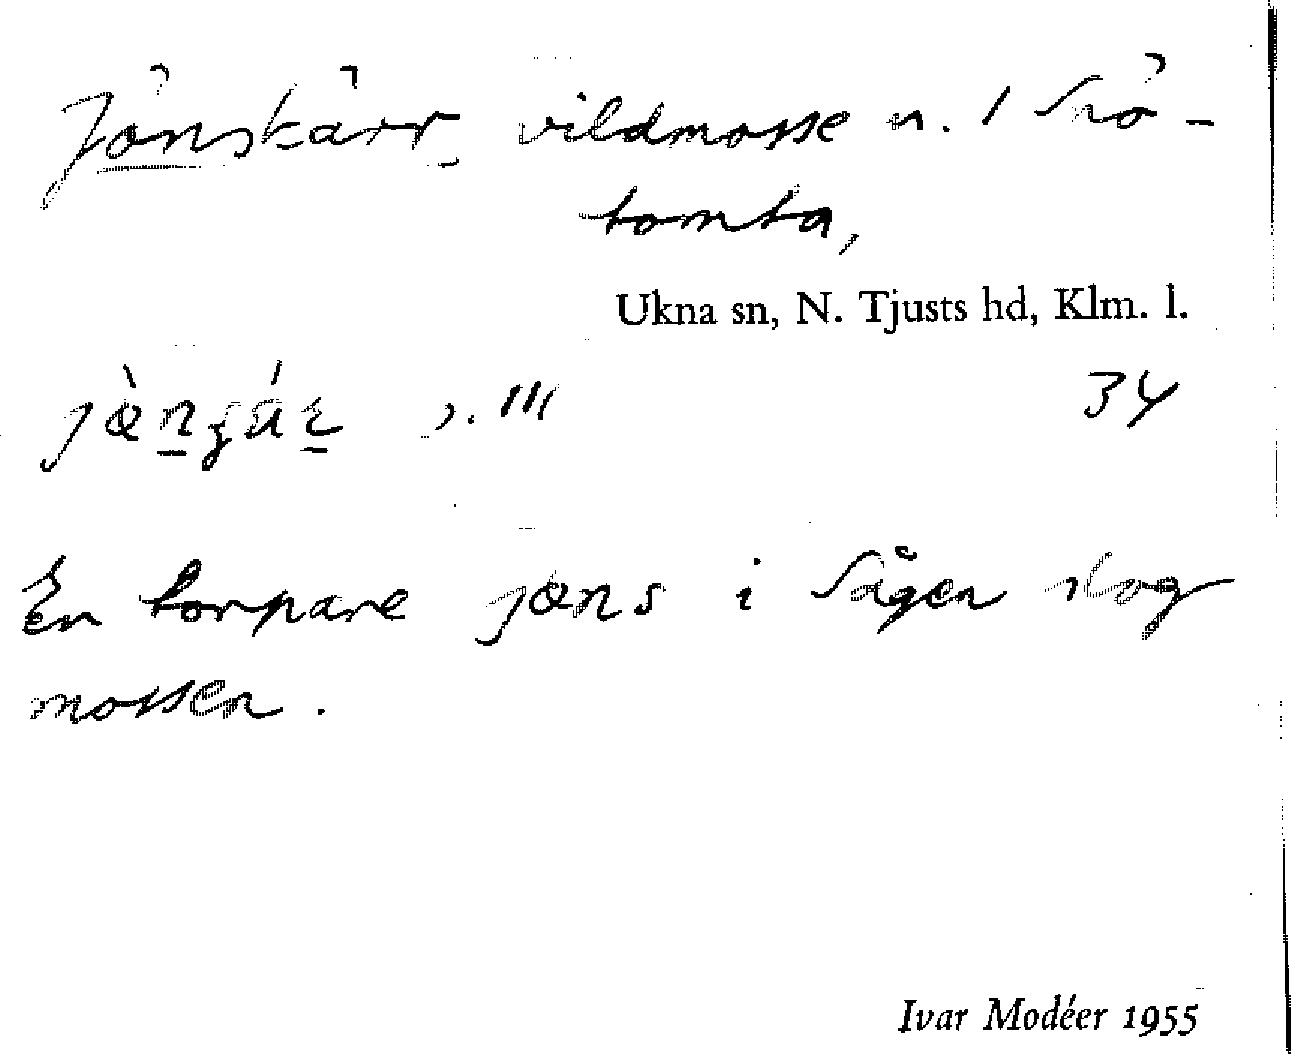 Jönskärr, vildmosse n. 1 Snö-
tomta,
Ukna sn, N. Tjusts hd, Klm. l.
34
En torpare jøns i Sågen slog
mossen.
Ivar Modéer 1955